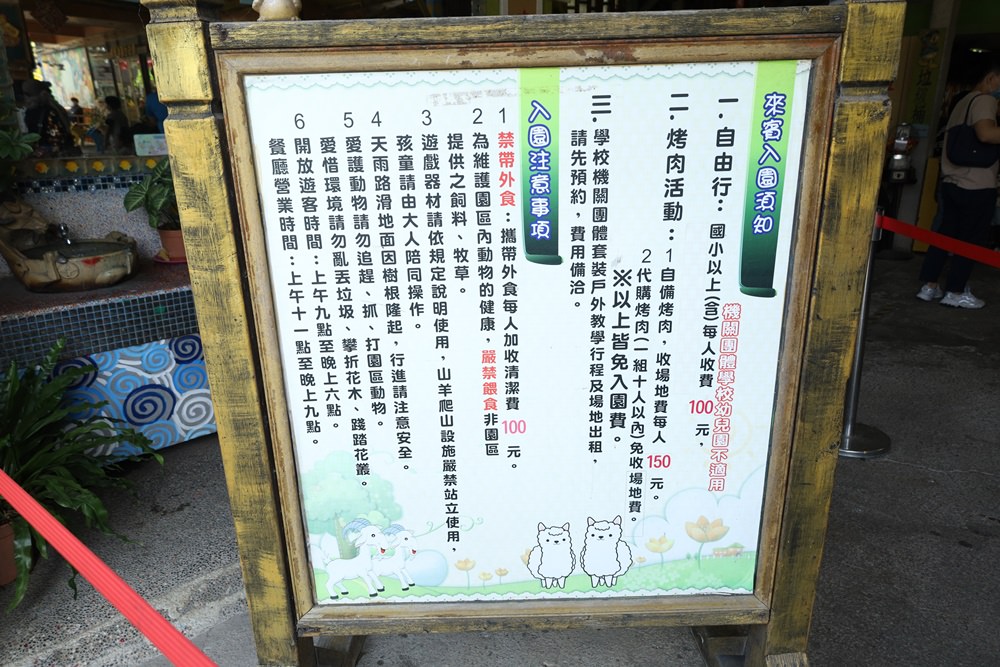 來賓入園須知
機關團體學校幼兒園不適用
一.自由行：國小以上(含)每人收費100元，
二.烤肉活動：1自備烤肉，收場地費每人150元。
2代購烤肉(一組十人以內)免收場地費。
※以上皆免入園費。
三.學校機關團體套裝戶外教學行程及場地出租，
請先預約，費用備洽。
入園注意事項
1禁帶外食：攜帶外食每人加收清潔費100元。
2為維護園區內動物的健康，嚴禁餵食非園區
提供之飼料、牧草。
3遊戲器材請依規定說明使用，山羊爬山設施嚴禁站立使用，
孩童請由大人陪同操作。
4天雨路滑地面因樹根隆起，行進請注意安全。
5愛護動物請勿追趕、抓、打園區動物。
愛惜環境請勿亂丟垃圾、攀折花木、踐踏花叢。
6開放遊客時間：上午九點至晚上六點。
餐廳營業時間：上午十一點至晚上九點。